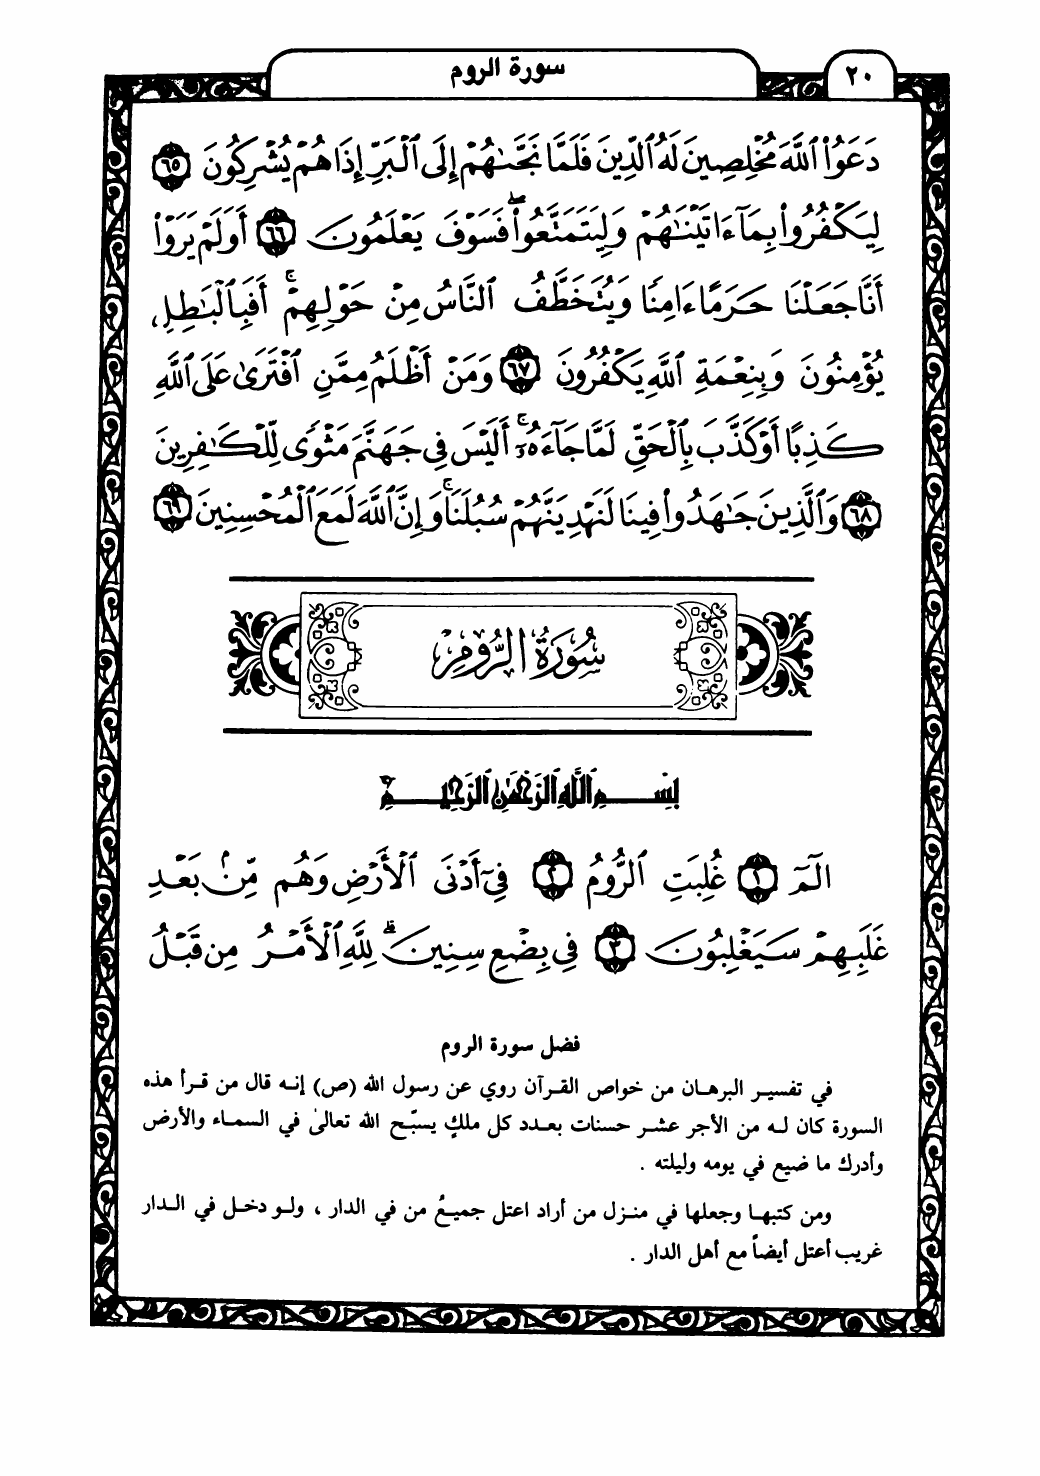 سورة الروم
٢٠
دَعَوُا۟ ٱللَّهَ مُخْلِصِينَ لَهُ ٱلدِّينَ فَلَمَّا نَجَّىٰهُمْ إِلَى ٱلْبَرِّ إِذَا هُمْ يُشْرِكُونَ ٦٥
لِيَكْفُرُوا۟ بِمَآ ءَاتَيْنَٰهُمْ وَلِيَتَمَتَّعُوا۟ ۖ فَسَوْفَ يَعْلَمُونَ ٦٦ أَوَلَمْ يَرَوْا۟
أَنَّا جَعَلْنَا حَرَمًا ءَامِنًا وَيُتَخَطَّفُ ٱلنَّاسُ مِنْ حَوْلِهِمْ ۚ أَفَبِٱلْبَٰطِلِ
يُؤْمِنُونَ وَبِنِعْمَةِ ٱللَّهِ يَكْفُرُونَ ٦٧ وَمَنْ أَظْلَمُ مِمَّنِ ٱفْتَرَىٰ عَلَى ٱللَّهِ
كَذِبًا أَوْ كَذَّبَ بِٱلْحَقِّ لَمَّا جَآءَهُۥٓ ۚ أَلَيْسَ فِى جَهَنَّمَ مَثْوًى لِّلْكَٰفِرِينَ
٦٨ وَٱلَّذِينَ جَٰهَدُوا۟ فِينَا لَنَهْدِيَنَّهُمْ سُبُلَنَا ۚ وَإِنَّ ٱللَّهَ لَمَعَ ٱلْمُحْسِنِينَ ٦٩
سُورَةُ الرُّومِ
بِسْمِ ٱللَّهِ ٱلرَّحْمَٰنِ ٱلرَّحِيمِ
الٓمٓ ١ غُلِبَتِ ٱلرُّومُ ٢ فِىٓ أَدْنَى ٱلْأَرْضِ وَهُم مِّنۢ بَعْدِ
غَلَبِهِمْ سَيَغْلِبُونَ ٣ فِى بِضْعِ سِنِينَ ۗ لِلَّهِ ٱلْأَمْرُ مِن قَبْلُ
فضل سورة الروم
في تفسير البرهان من خواص القرآن روي عن رسول الله (ص) إنه قال من قرأ هذه
السورة كان له من الأجر عشر حسنات بعدد كل ملكٍ يسبّح الله تعالىٰ في السماء والأرض
وأدرك ما ضيع في يومه وليلته .
ومن كتبها وجعلها في منزل من أراد اعتل جميعُ من في الدار ، ولو دخل في الدار
غريب أعتل أيضاً مع أهل الدار .